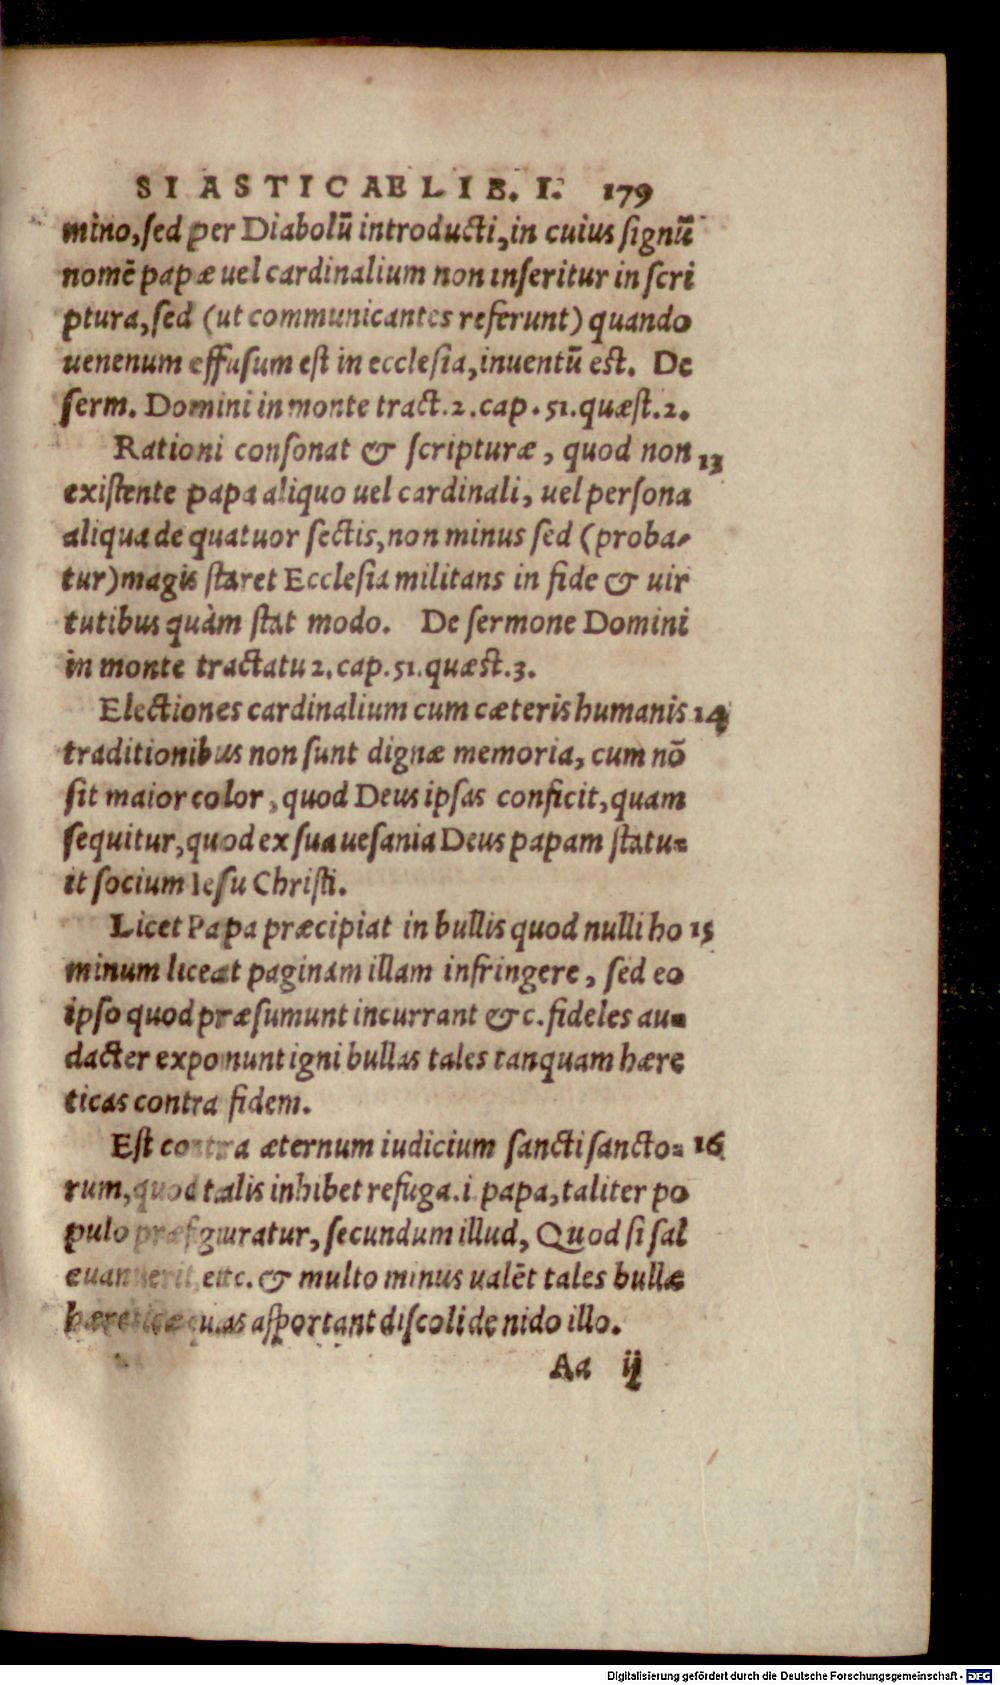 SIASTICAE LIB. I. 179
mino, sed per Diabolū introducti, in cuius signū
nomē papæ uel cardinalium non inseritur in scri
ptura, sed (ut communicantes referunt) quando
uenenum effusum est in ecclesia, inuentū est. De
serm. Domini in monte tract. 2. cap. 51. quæst. 2.
Rationi consonat & scripturæ, quod non 13
existente papa aliquo uel cardinali, uel persona
aliqua de quatuor sectis, non minus sed (proba-
tur) magis staret Ecclesia militans in fide & uir
tutibus quàm stat modo. De sermone Domini
in monte tractatu 2. cap. 51. quæst. 3.
Electiones cardinalium cum cæteris humanis 14
traditionibus non sunt dignæ memoria, cum nō
sit maior color, quod Deus ipsas conficit, quam
sequitur, quod ex sua uesania Deus papam statu-
it socium Iesu Christi.
Licet Papa præcipiat in bullis quod nulli ho 15
minum liceat paginam illam infringere, sed eo
ipso quod præsumunt incurrant &c. fideles au-
dacter exponunt igni bullas tales tanquam hære
ticas contra fidem.
Est contra æternum iudicium sancti sancto- 16
rum, quod talis inhibet refuga .i. papa, taliter po
pulo præfiguratur, secundum illud, Quod si sal
euanuerit, etc. & multo minus ualēt tales bullæ
hæreticæ quas asportant discoli de nido illo.
Aa ij
Digitalisierung gefördert durch die Deutsche Forschungsgemeinschaft - DFG